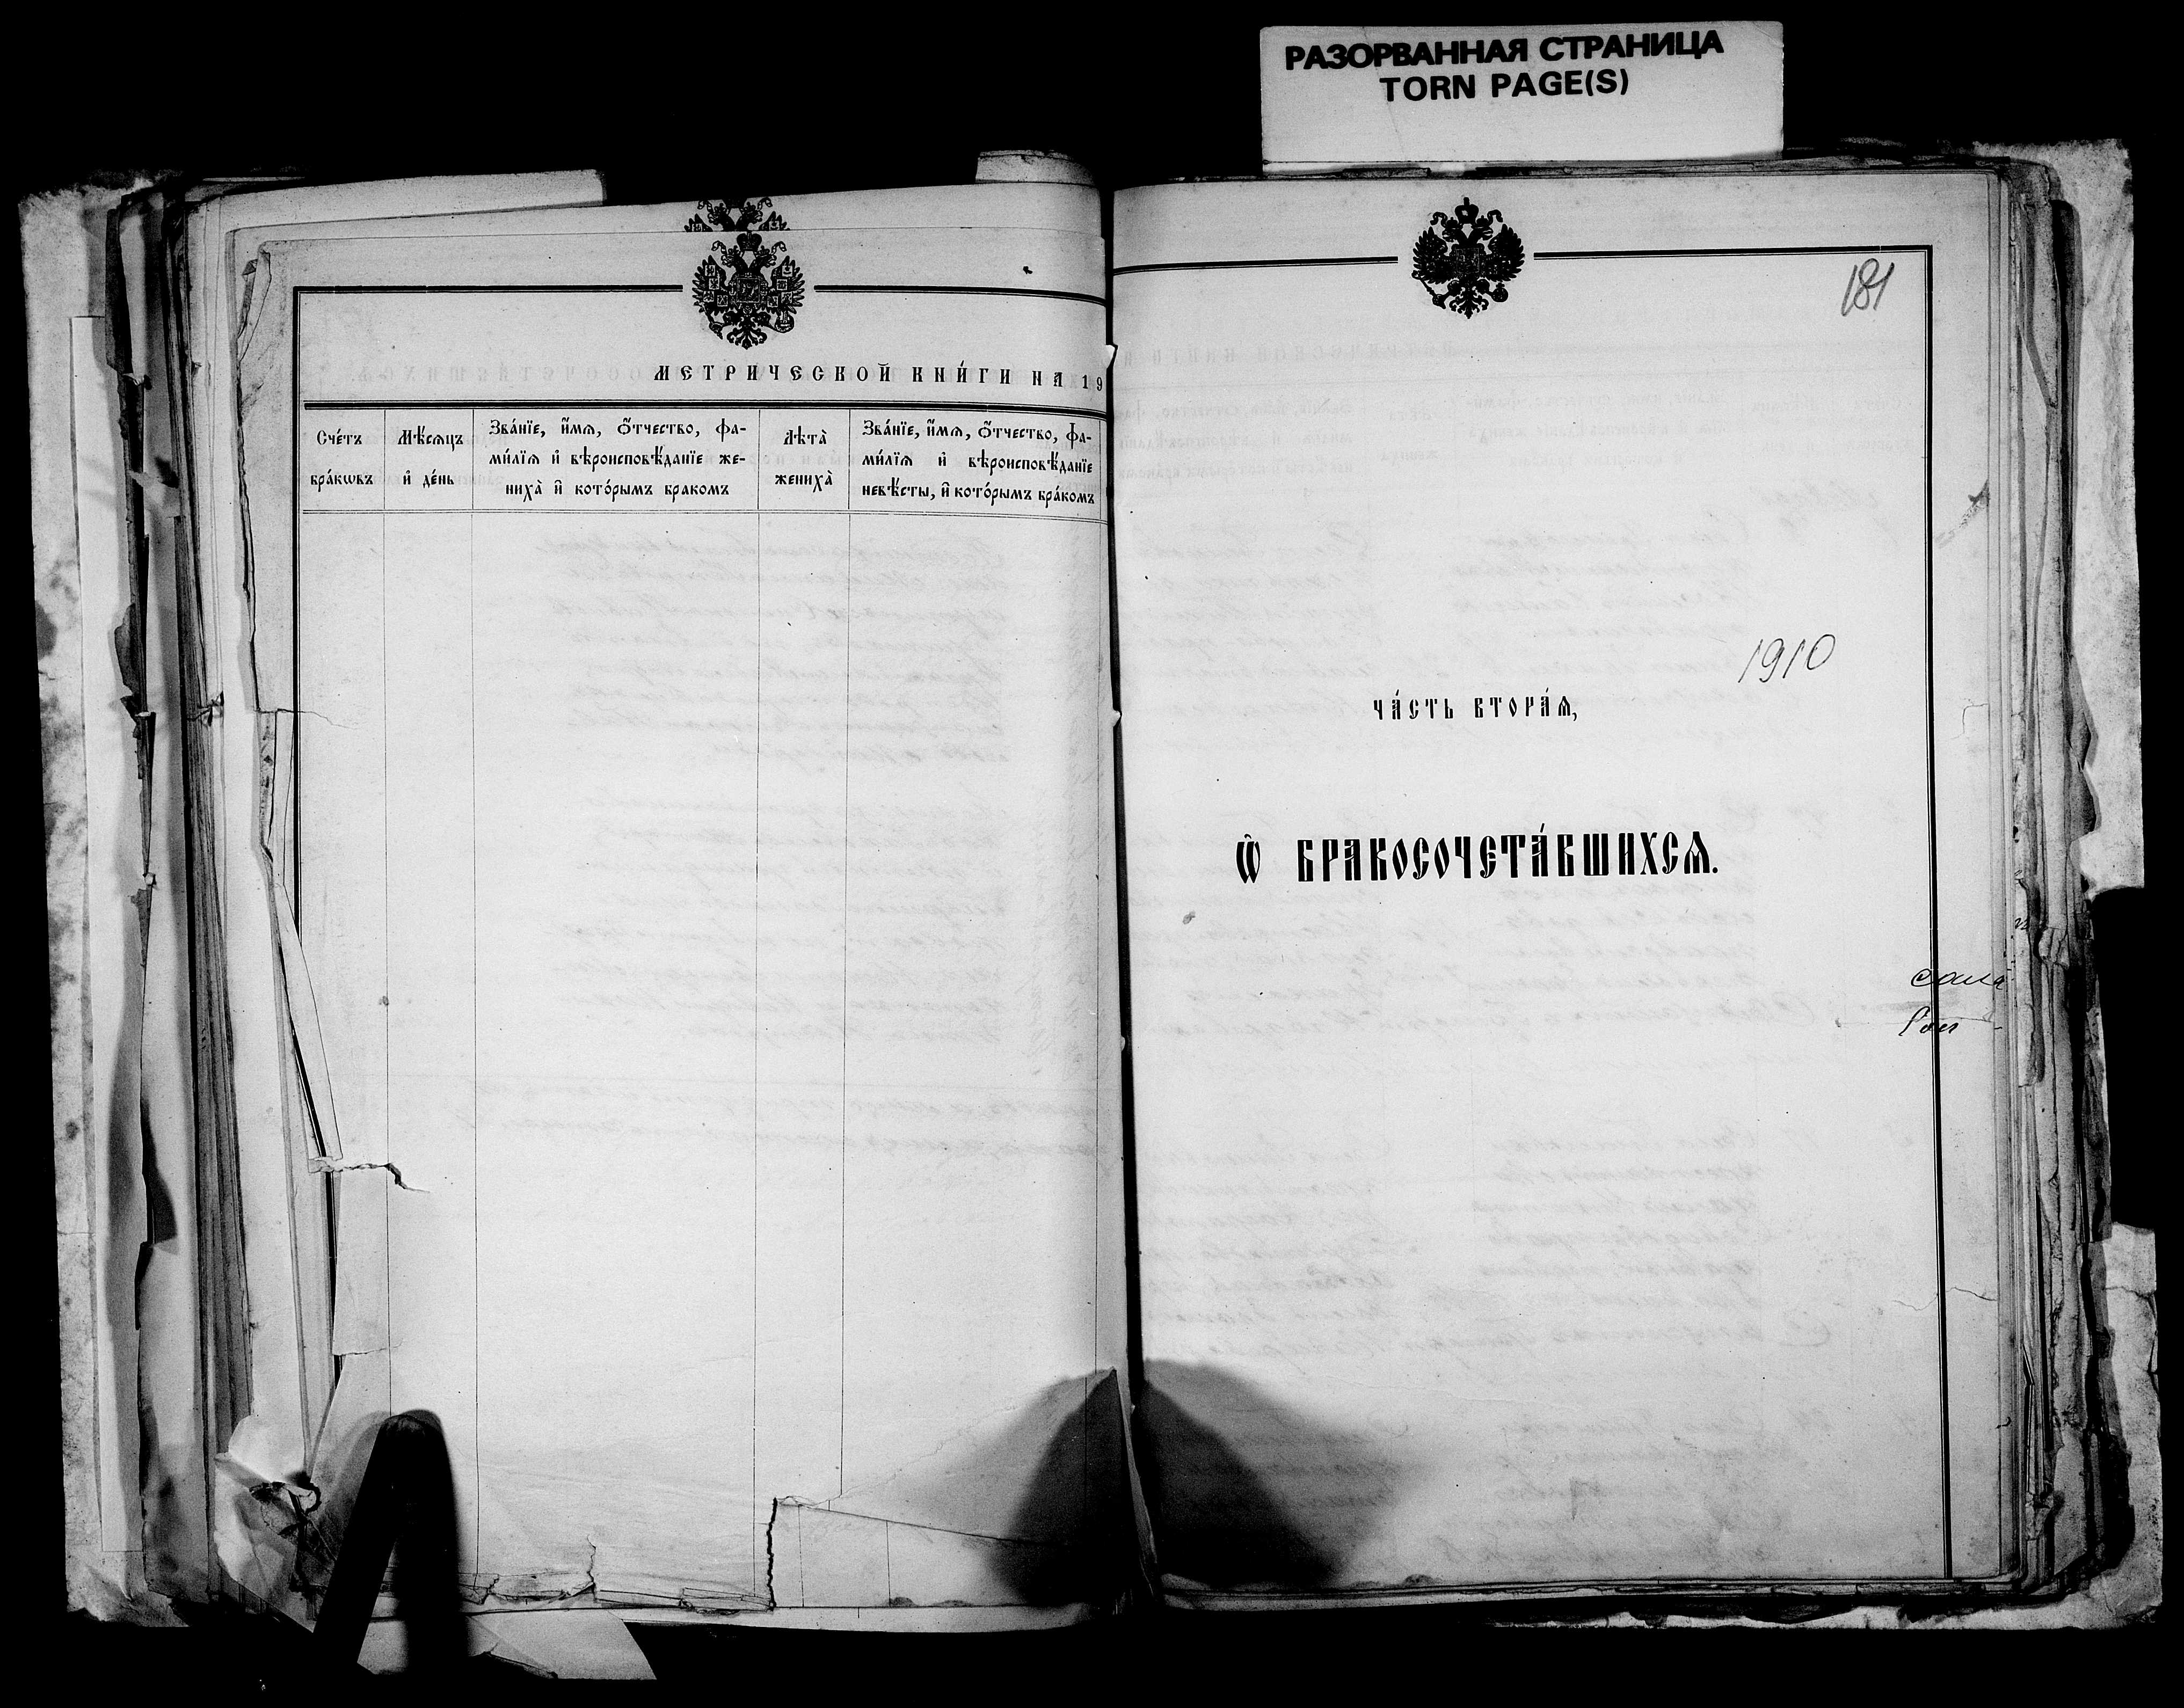 РАЗОРВАННАЯ СТРАНИЦА
TORN PAGE(S)
МЕТРИЧЕСКОЙ КНИ́ГИ НА 19
Сче́тъ
бра́кѡвъ
Мѣ́сѧцъ
и҆ де́нь
Зва́нїе, и҆́мѧ, ѻ҆́тчество, фа-
ми́лїѧ и҆ вѣроисповѣ́данїе же-
ниха̀ и҆ кото́рымъ бракомъ
Лѣта̀
жениха̀
Зва́нїе, и҆́мѧ, ѻ҆́тчество, фа-
ми́лїѧ и҆ вѣроисповѣ́данїе
невѣ́сты, и҆ кото́рымъ бра́комъ
181
1910
ЧА́СТЬ ВТОРА́Ѧ,
Ѡ҆ БРАКОСОЧЕТА́ВШИХСѦ.